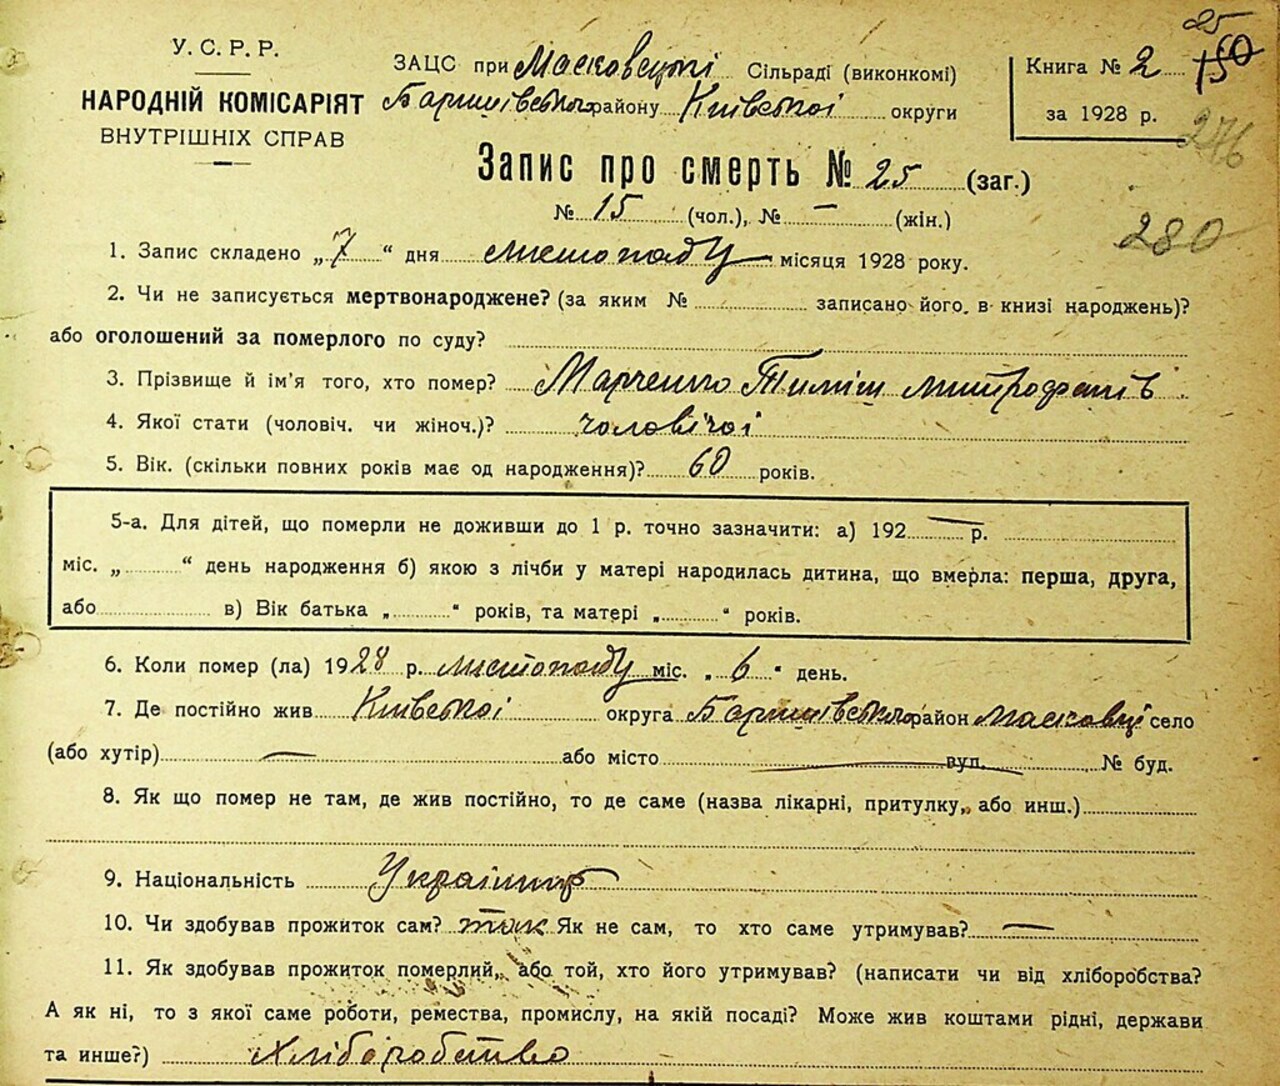 25
У. С. Р. Р.
НАРОДНІЙ КОМІСАРІЯТ
ВНУТРІШНІХ СПРАВ
ЗАЦС при Масковецкі Сільраді (виконкомі)
Баришівського району Київської округи
Книга № 2 150
за 1928 р.
276
Запис про смерть № 25 (заг.)
№ 15 (чол.), № — (жін.)
280
1. Запис складено „7“ дня листопаду місяця 1928 року.
2. Чи не записується мертвонароджене? (за яким № записано його в книзі народжень)?
або оголошений за померлого по суду?
3. Прізвище й ім'я того, хто помер? Марченко Тиміш Митрофанів
4. Якої стати (чоловіч. чи жіноч.)? чоловічої
5. Вік. (скільки повних років має од народження)? 60 років.
5-а. Для дітей, що померли не доживши до 1 р. точно зазначити: а) 192 — р.
міс. „ “ день народження б) якою з лічби у матері народилась дитина, що вмерла: перша, друга,
або в) Вік батька „ “ років, та матері „ “ років.
6. Коли помер (ла) 1928 р. листопаду міс. „6“ день.
7. Де постійно жив Київської округа Баришівського район Масковці село
(або хутір) — або місто — вул. № буд.
8. Як що помер не там, де жив постійно, то де саме (назва лікарні, притулку, або инш.)
9. Національність Українець
10. Чи здобував прожиток сам? так Як не сам, то хто саме утримував? —
11. Як здобував прожиток померлий, або той, хто його утримував? (написати чи від хліборобства?
А як ні, то з якої саме роботи, ремества, промислу, на якій посаді? Може жив коштами рідні, держави
та инше?) Хліборобство